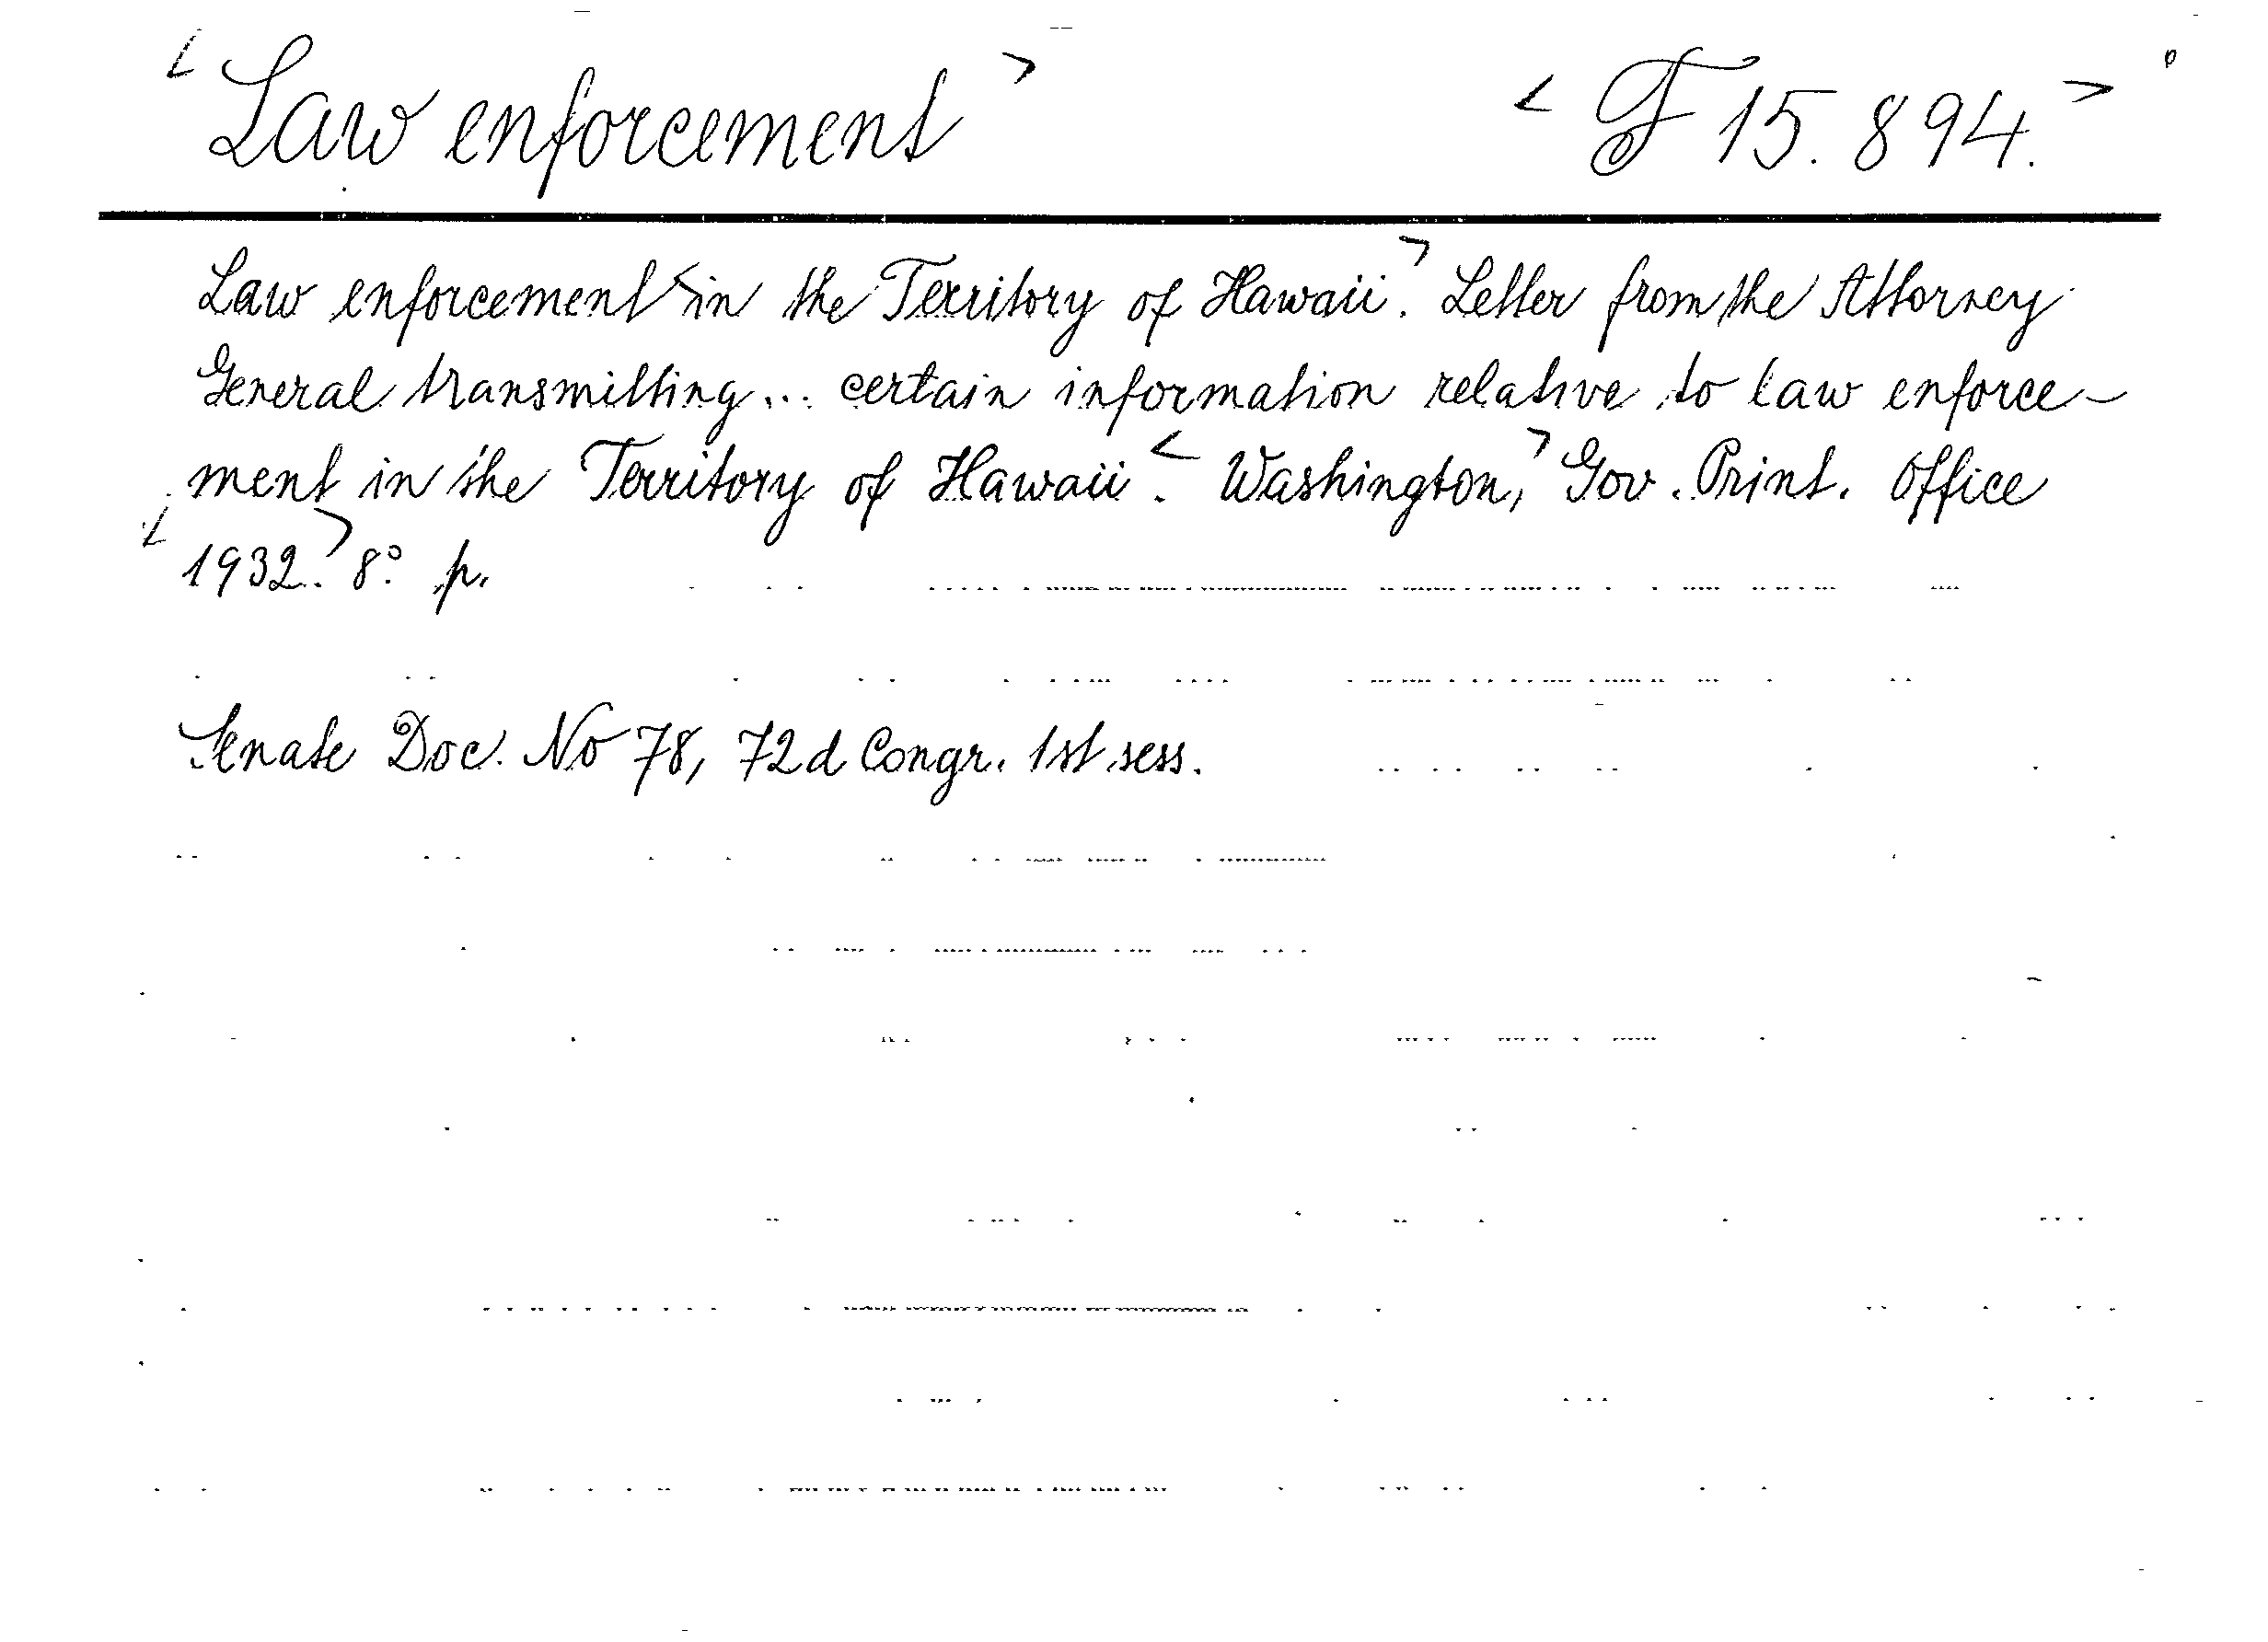 <Law enforcement> <F 15.894.>
Law enforcement <in the Territory of Hawaii>. Letter from the Attorney
General transmitting... certain information relative to law enforce-
ment in the Territory of Hawaii. <Washington,> Gov. Print. Office
<1932.> 8° p.
Senate Doc. No 78, 72d Congr. 1st sess.